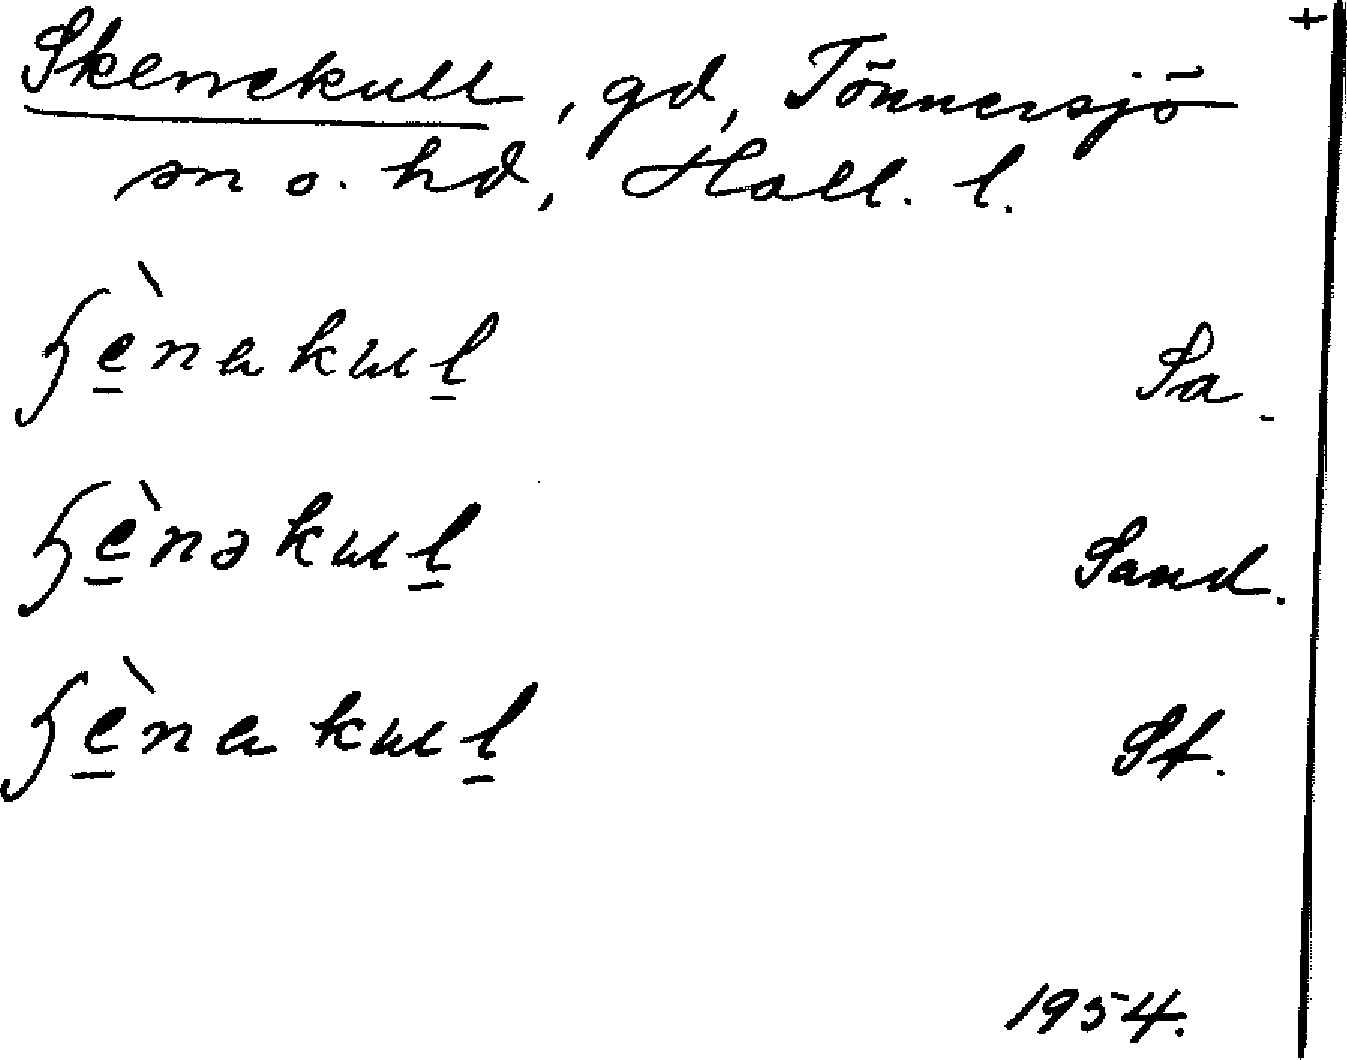 +
Skenekull, gd, Tönnersjö
sn o. hd, Hall. l.
ɧè̲nakul̲ Sa.
ɧè̲nəkul̲ Sand.
ɧè̲nakul̲ St.
1954.